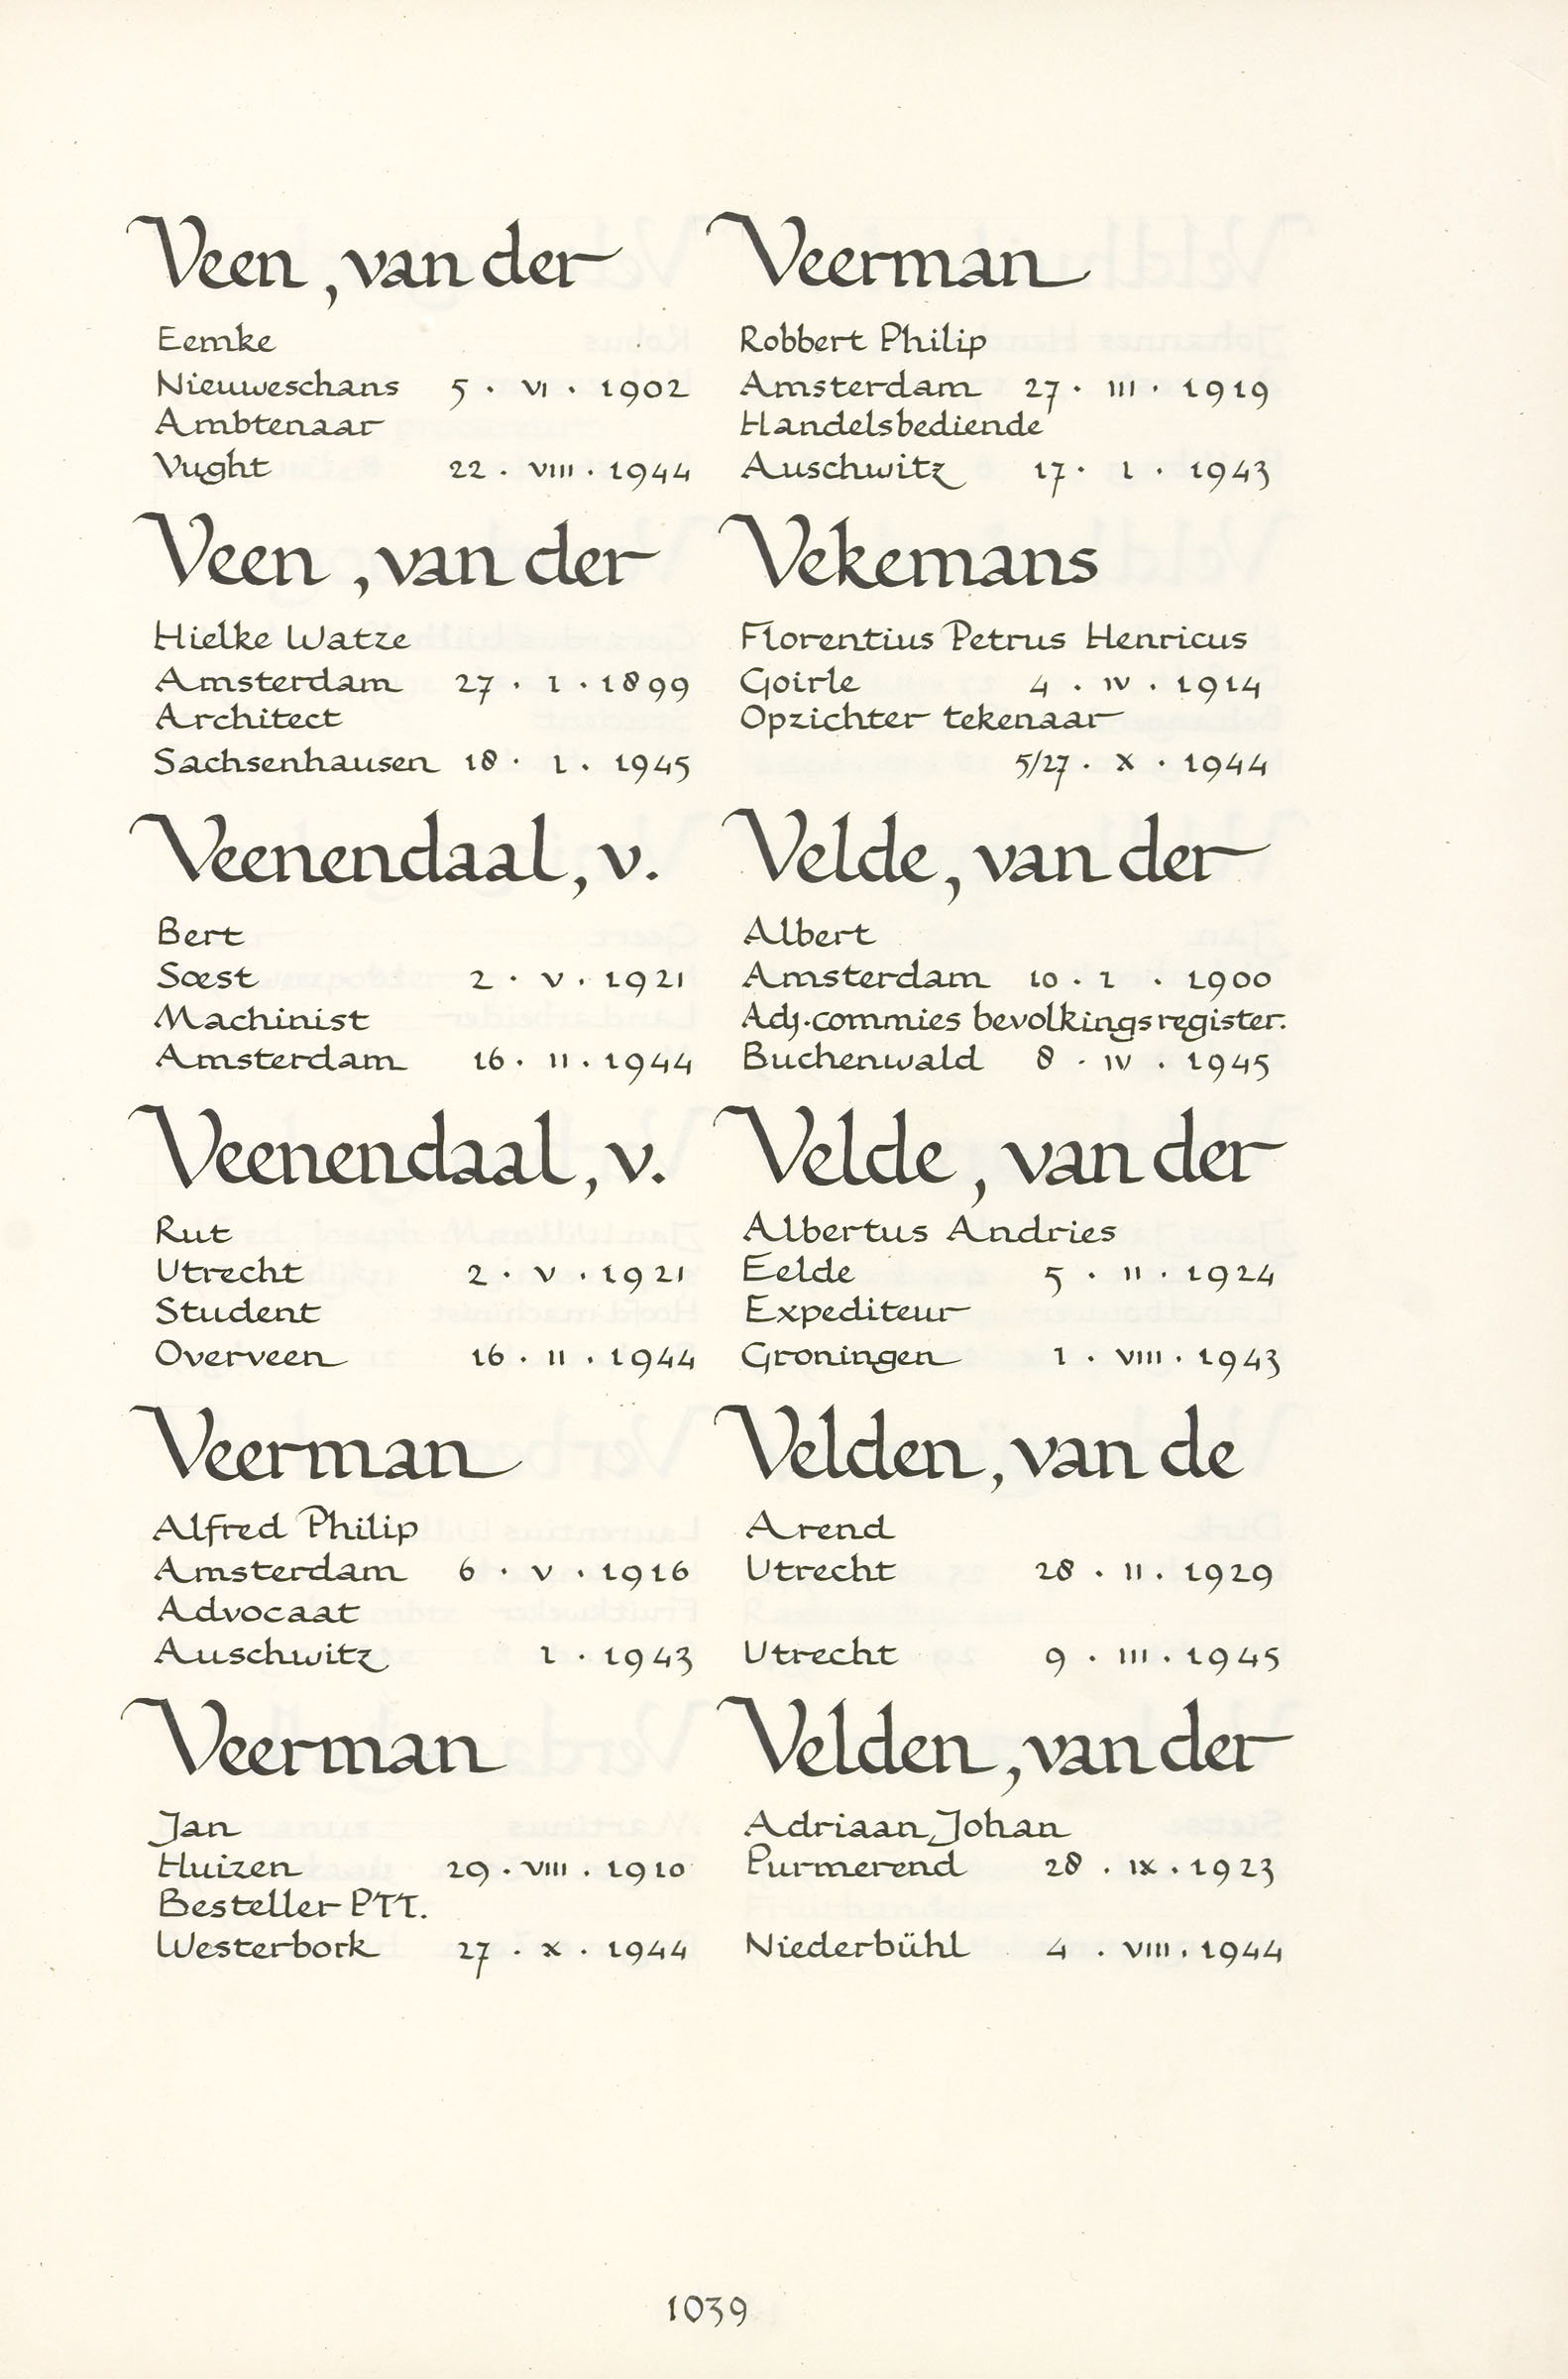 Veen, van der
Eemke
Nieuweschans 5 · VI · 1902
Ambtenaar
Vught 22 · VIII · 1944
Veen, van der
Hielke Watze
Amsterdam 27 · I · 1899
Architect
Sachsenhausen 18 · I · 1945
Veenendaal, v.
Bert
Soest 2 · V · 1921
Machinist
Amsterdam 16 · II · 1944
Veenendaal, v.
Rut
Utrecht 2 · V · 1921
Student
Overveen 16 · II · 1944
Veerman
Alfred Philip
Amsterdam 6 · V · 1916
Advocaat
Auschwitz I · 1943
Veerman
Jan
Huizen 29 · VIII · 1910
Besteller PTT.
Westerbork 27 · X · 1944
Veerman
Robbert Philip
Amsterdam 27 · III · 1919
Handelsbediende
Auschwitz 17 · I · 1943
Vekemans
Florentius Petrus Henricus
Goirle 4 · IV · 1914
Opzichter tekenaar
5/27 · X · 1944
Velde, van der
Albert
Amsterdam 10 · I · 1900
Adj. commies bevolkingsregister.
Buchenwald 8 · IV · 1945
Velde, van der
Albertus Andries
Eelde 5 · II · 1924
Expediteur
Groningen 1 · VIII · 1943
Velden, van de
Arend
Utrecht 28 · II · 1929
Utrecht 9 · III · 1945
Velden, van der
Adriaan Johan
Purmerend 28 · IX · 1923
Niederbühl 4 · VIII · 1944
1039